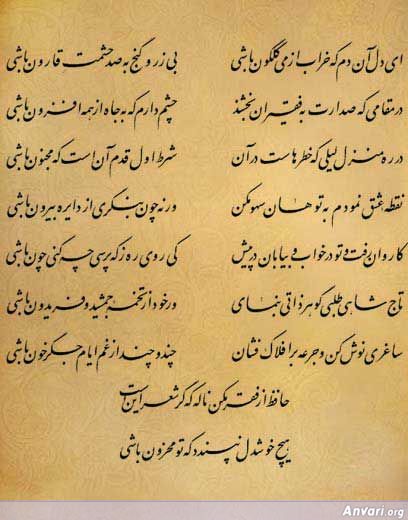 ای دل آن دم که خراب از می گلگون باشی بی زر و گنج به صد حشمت قارون باشی
در مقامی که صدارت به فقیران بخشند چشم دارم که به جاه از همه افزون باشی
در ره منزل لیلی که خطرهاست در آن شرط اول قدم آن است که مجنون باشی
نقطه عشق نمودم به تو هان سهو مکن ورنه چون بنگری از دایره بیرون باشی
کاروان رفت و تو در خواب و بیابان در پیش کی روی ره ز که پرسی چه کنی چون باشی
تاج شاهی طلبی گوهر ذاتی بنمای ور خود از تخمه جمشید و فریدون باشی
ساغری نوش کن و جرعه بر افلاک فشان چند و چند از غم ایام جگر خون باشی
حافظ از فقر مکن ناله که گر شعر این است
هیچ خوشدل نپسندد که تو محزون باشی
Anvari.org